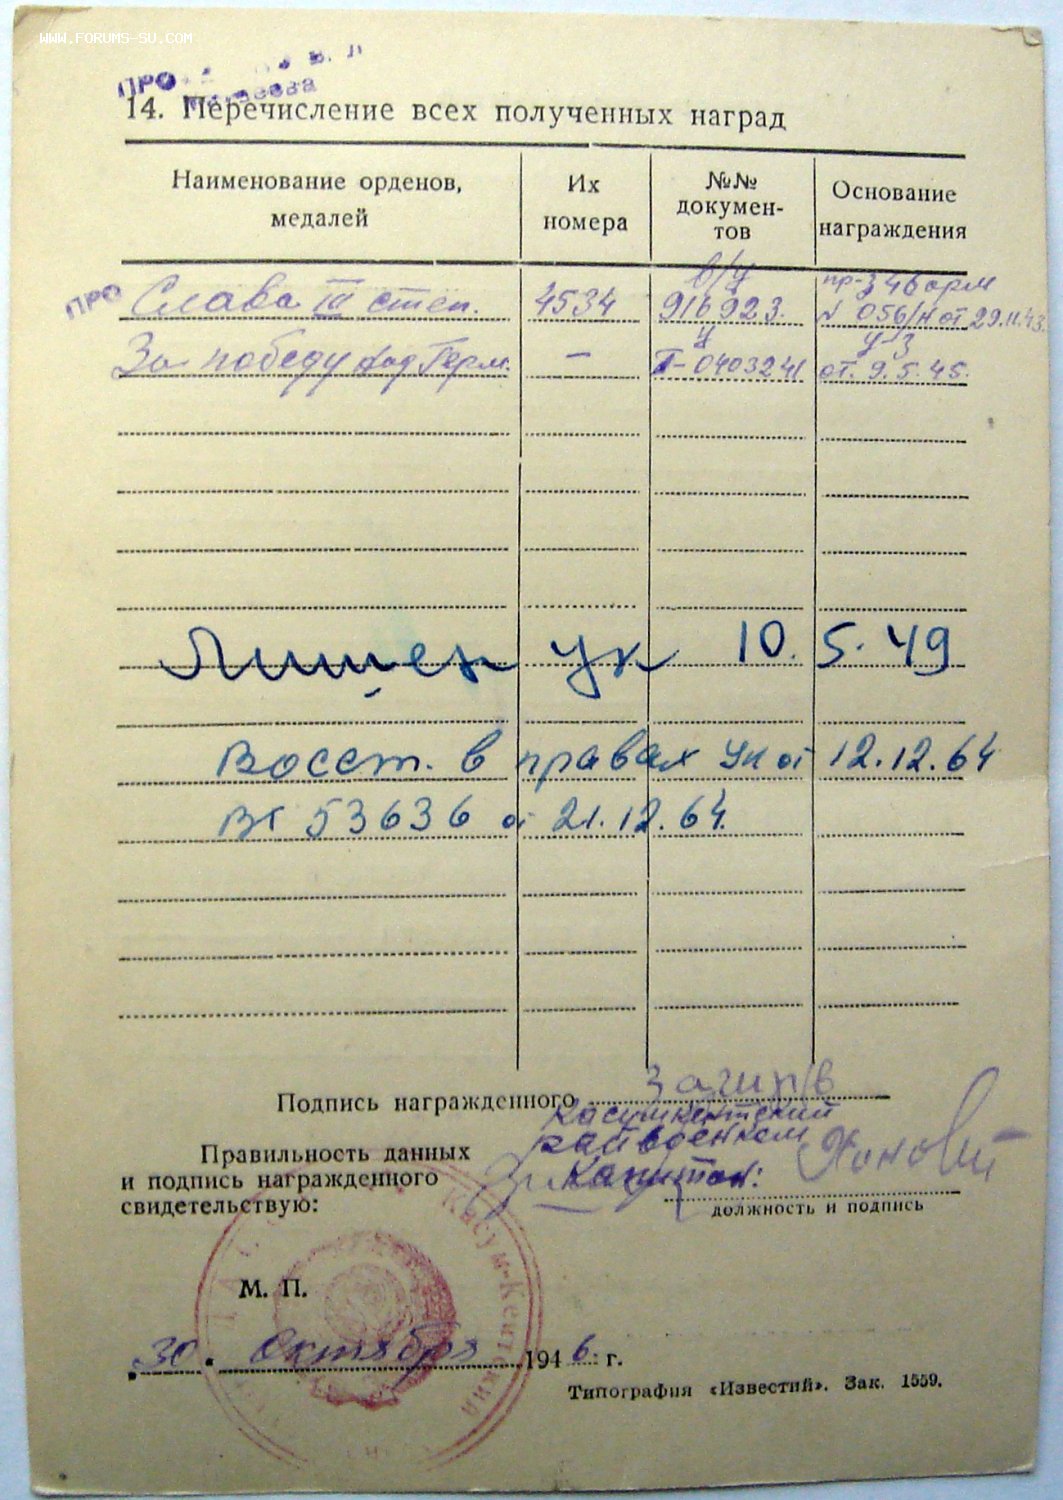 WWW.FORUMS-SU.COM
ПРО
14. Перечисление всех полученных наград
Наименование орденов, медалей
Их номера
№№ докумен-тов
Основание награждения
ПРО Слава III степ. 4534 в/у 916923. пр-з 4б арм № 056/н от 29.11.43.
За победу над Герм. — у Т-0403241 ук-з от. 9.5.45.
Лишен ук 10.5.49
Восст. в правах Ук от 12.12.64
ВГ 53636 от 21.12.64.
Подпись награжденного
Касумкентский
райвоенком
Капитан:
Правильность данных
и подпись награжденного
свидетельствую:
должность и подпись
Касум-Кентский
М. П.
„30“ Октября 1946 г.
Типография «Известий». Зак. 1559.